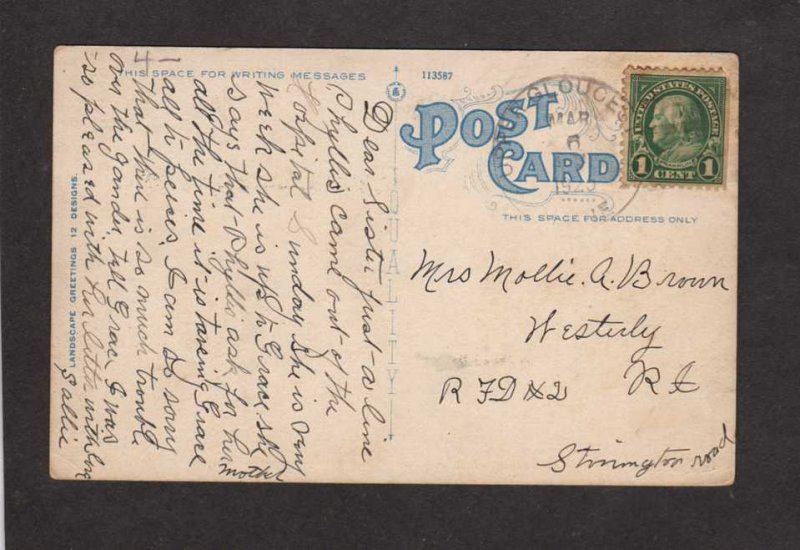 4-
THIS SPACE FOR WRITING MESSAGES
113587
Dear Sister Just a line
Phyllis came out of the
Hospital Sunday she is very
week she is up to Grace she
says that Phyllis ask for her
mother
all the time it is taring Grace
all to peices, I am so sorry
that there is so much trouble
on the gander, tell Grace I was
so pleased with her letter with love
Sallie
LANDSCAPE GREETINGS 12 DESIGNS.
QUALITY
POST CARD
GLOUCES
MAR
6
UNITED STATES POSTAGE
FRANKLIN
1 CENT 1
THIS SPACE FOR ADDRESS ONLY
Mrs Mollie. A. Brown
Westerly
R F D No 2 R I
Stonington road